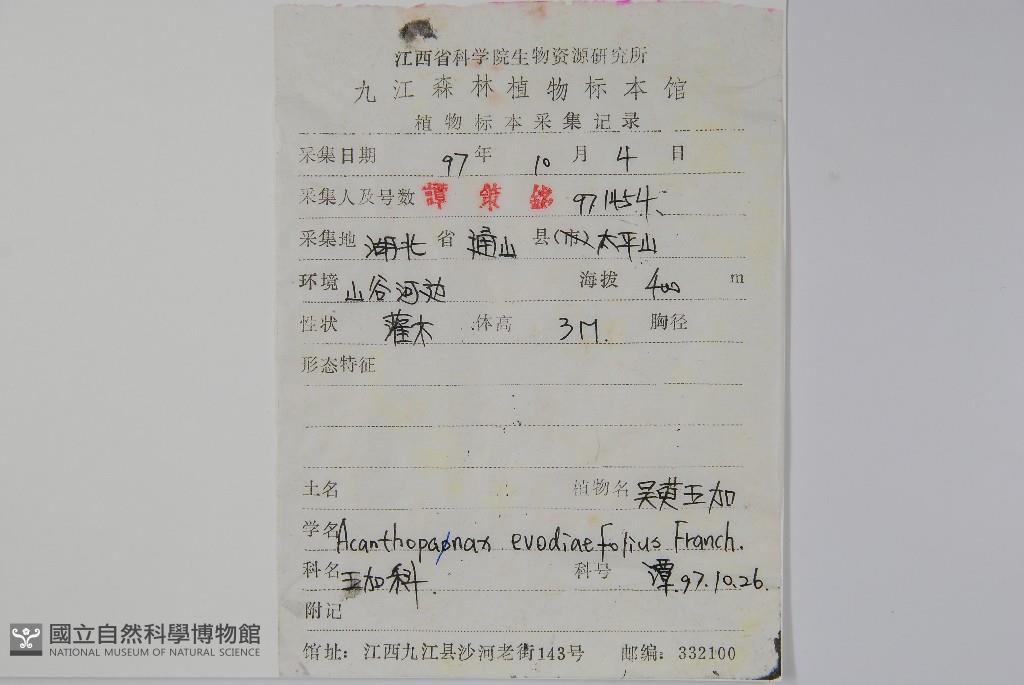 江西省科学院生物资源研究所
九江森林植物标本馆
植物标本采集记录
采集日期 97年 10月 4日
采集人及号数 譚策铭 971454
采集地 湖北 省 通山 县(市) 太平山
环境 山谷河边 海拔 400 m
性状 灌木 体高 3M. 胸径
形态特征
土名 植物名 吴茰五加
学名 Acanthopanax evodiaefolius Franch.
科名 五加科 科号 谭.97.10.26.
附记
馆址: 江西九江县沙河老街143号 邮编: 332100
國立自然科學博物館
NATIONAL MUSEUM OF NATURAL SCIENCE